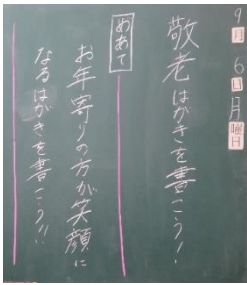 9月6日月曜日
敬老はがきを書こう!
めあて
お年寄りの方が笑顔に
なるはがきを書こう!!